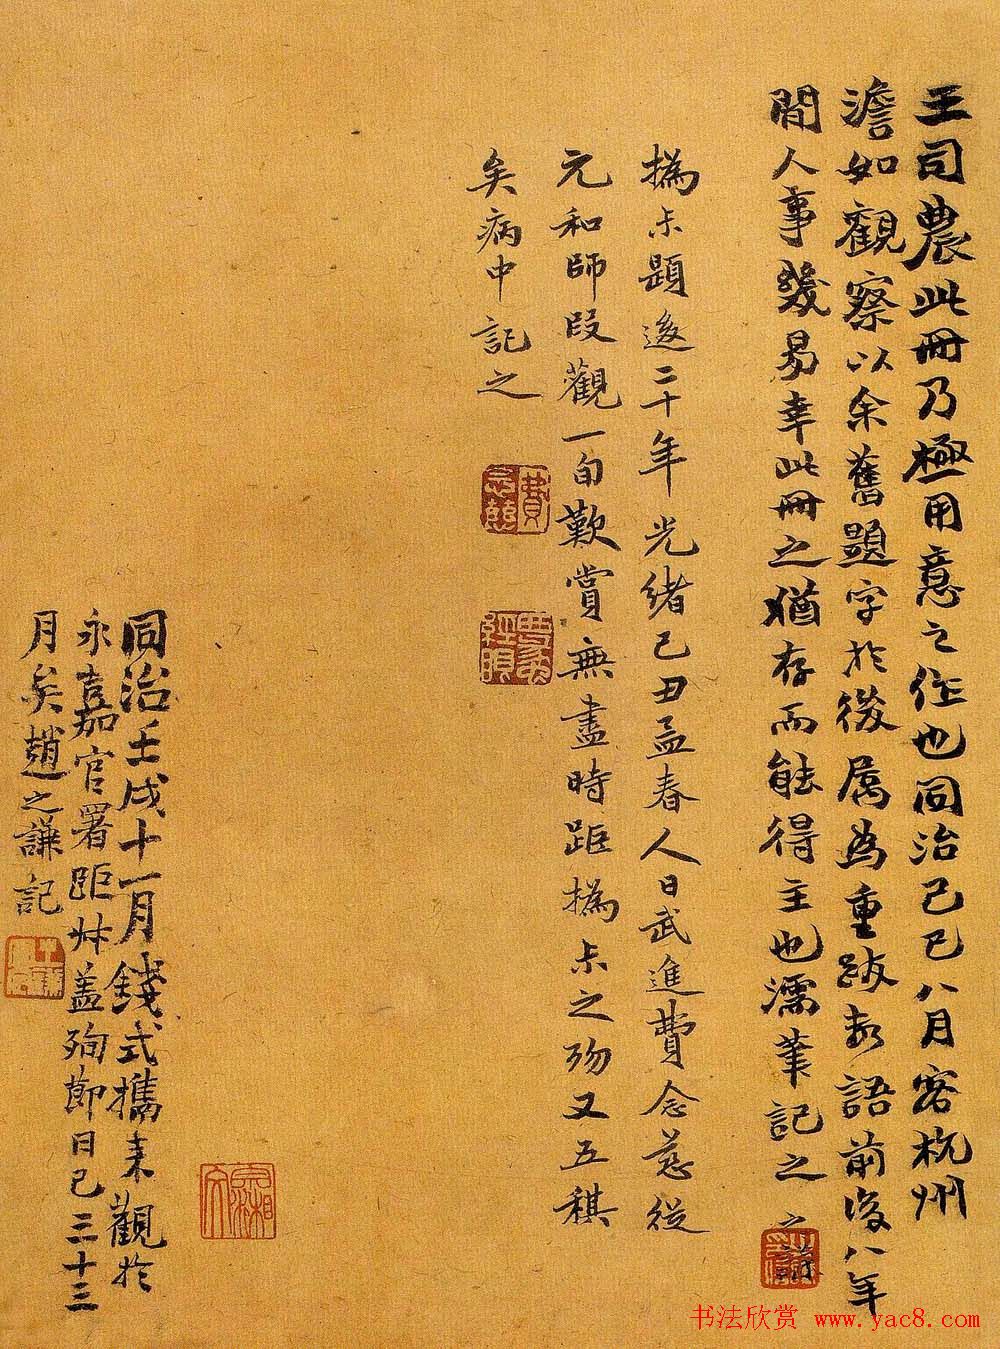 王司農此冊乃極用意之作也同治己巳八月客杭州
澹如觀察以余舊題字於後屬為重跋數語前後八年
間人事幾易幸此冊之猶存而能得主也濡筆記之 之謙
撝未題後二十年光緒己丑孟春人日武進費念慈從
元和師叚觀一旬歎賞無盡時距撝未之歿又五稘
矣病中記之
費念慈
同治壬戌十一月錢式攜來觀於
永嘉官署距卅盖殉節日已三十三
月矣趙之謙記
书法欣赏 www.yac8.com